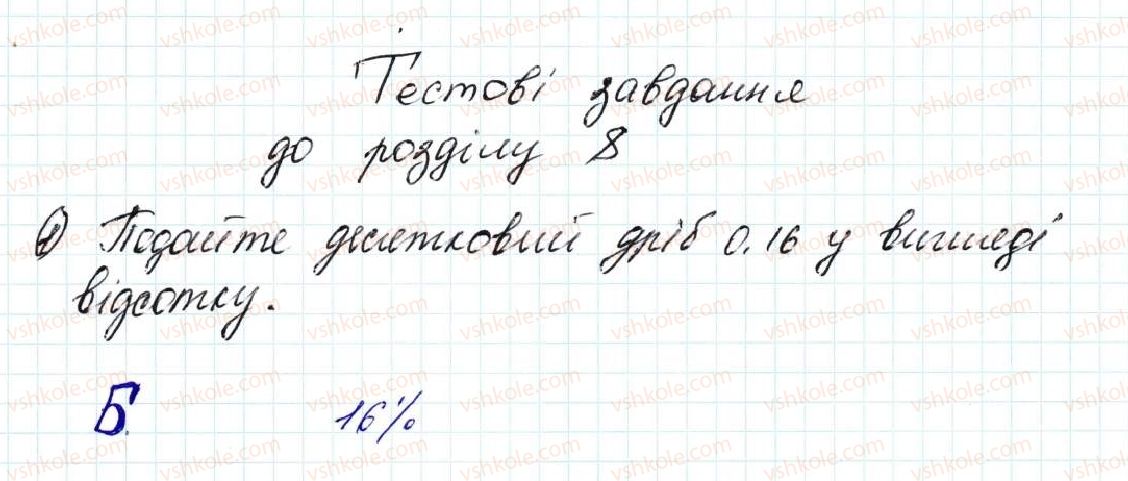 Тестові завдання
до розділу 8
1) Подайте десятковий дріб 0.16 у вигляді
відсотку.
Б. 16%